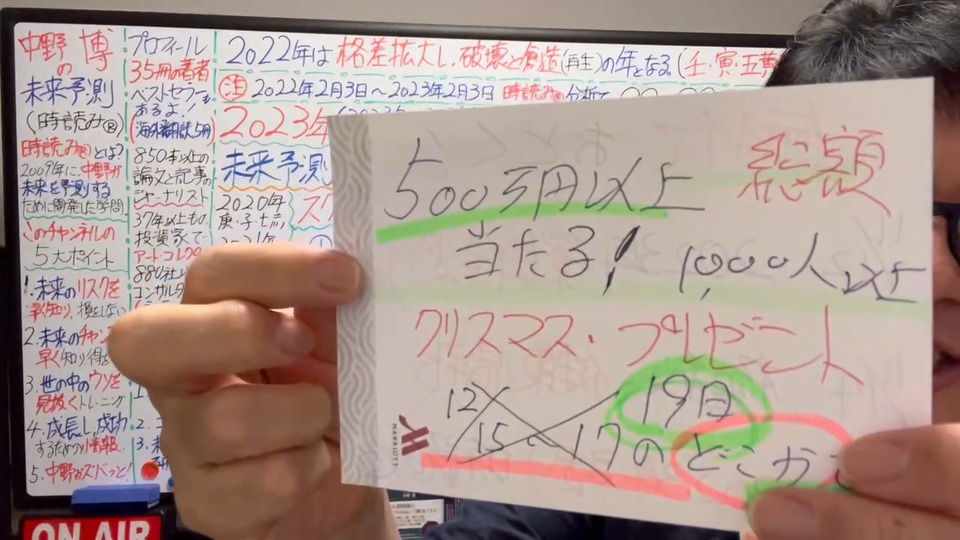 中野 博
の
未来予測
(時読み®)
時読み®とは?
2009年に、中野が
未来を予測する
ために開発した学問
このチャンネルの
5大ポイント
1.未来のリスクを
早く知り、損をしない
2.未来のチャン
早く知り得
3.世の中のウソを
見抜くトレーニング
4.成長し成功
するための情報
5.中野がズバっと!
ON AIR
プロフィール
35冊の著者
ベストセラーも
あるよ!
(海外翻訳5冊)
850本以上の
論文と記事の
ジャーナリスト
37年以上もの
投資家で
アートコレク
880社以
コンサルタ
2022年は 格差拡大し、破壊と創造(再生)の年となる(壬・寅・五黄
注 2022年2月3日〜2023年2月3日 時読み®分析で
2023年
未来予測
2020年
庚・子・七赤
500万円以上 総額
当たる! 1,000人以上
クリスマス・プレゼント
12/15~17の 19日
どこか
MARRIOTT